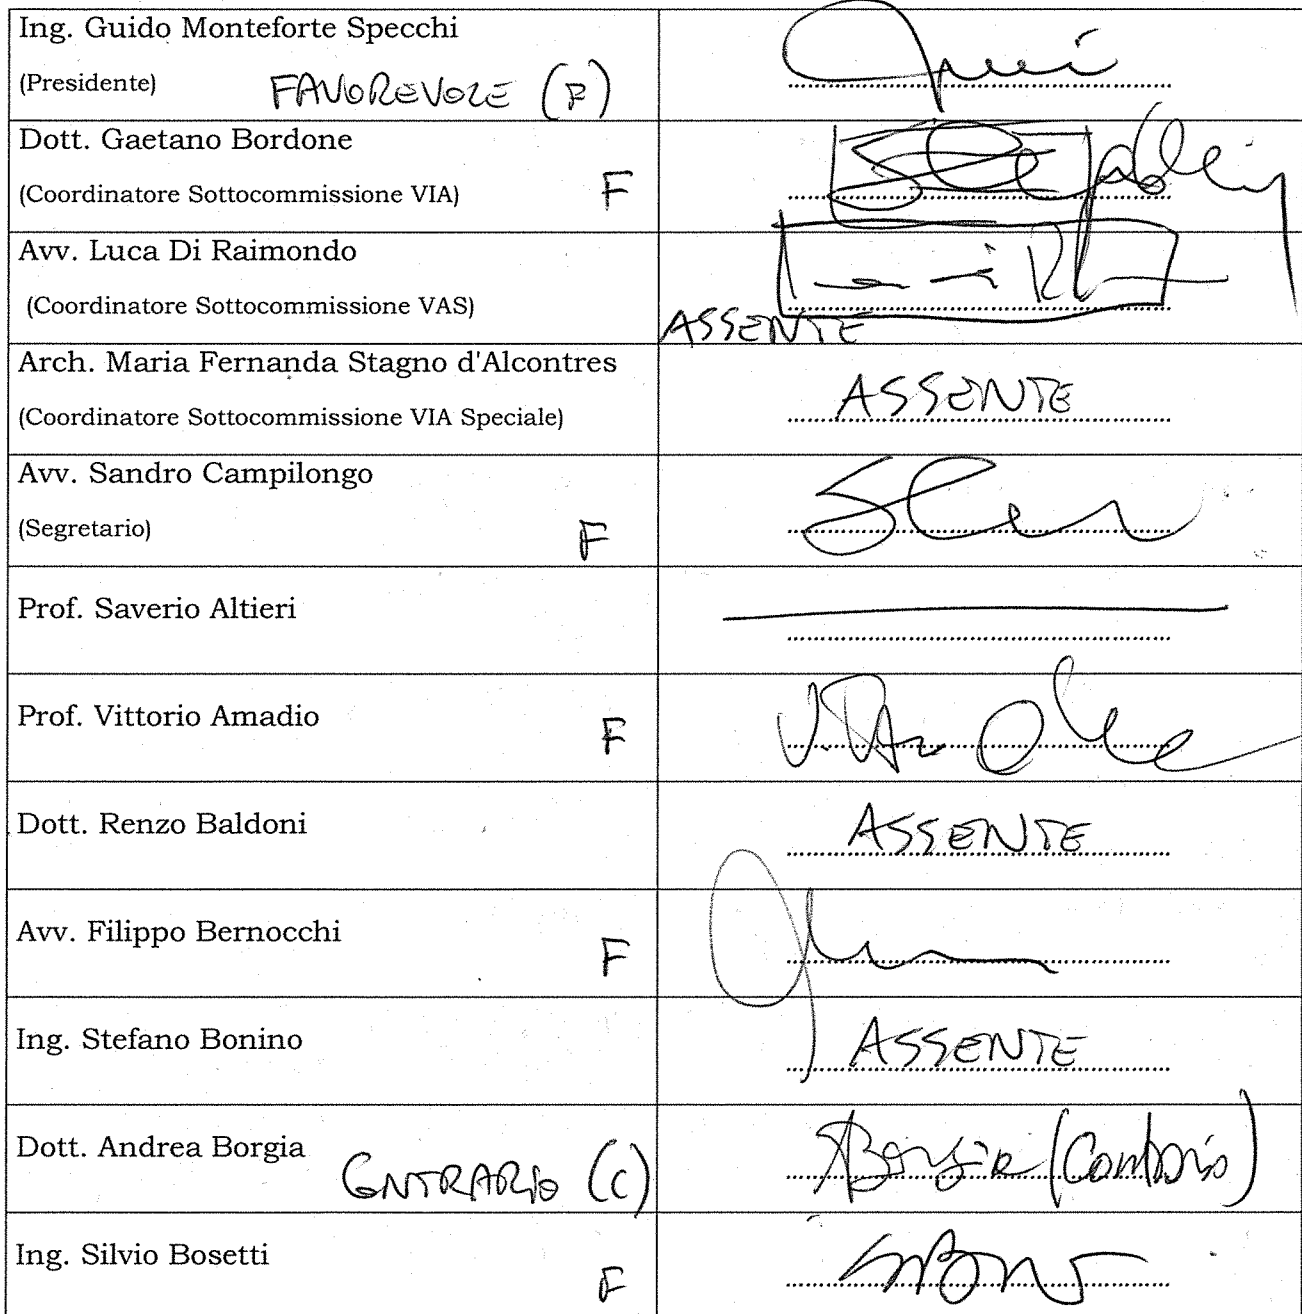 Ing. Guido Monteforte Specchi
(Presidente) FAVOREVOLE (F)
Dott. Gaetano Bordone
(Coordinatore Sottocommissione VIA) F
Avv. Luca Di Raimondo
(Coordinatore Sottocommissione VAS)
ASSENTE
Arch. Maria Fernanda Stagno d'Alcontres
(Coordinatore Sottocommissione VIA Speciale)
ASSENTE
Avv. Sandro Campilongo
(Segretario) F
Prof. Saverio Altieri
Prof. Vittorio Amadio F
Dott. Renzo Baldoni
ASSENTE
Avv. Filippo Bernocchi F
Ing. Stefano Bonino
ASSENTE
Dott. Andrea Borgia
CONTRARIO (C)
Borgia (Contrario)
Ing. Silvio Bosetti F